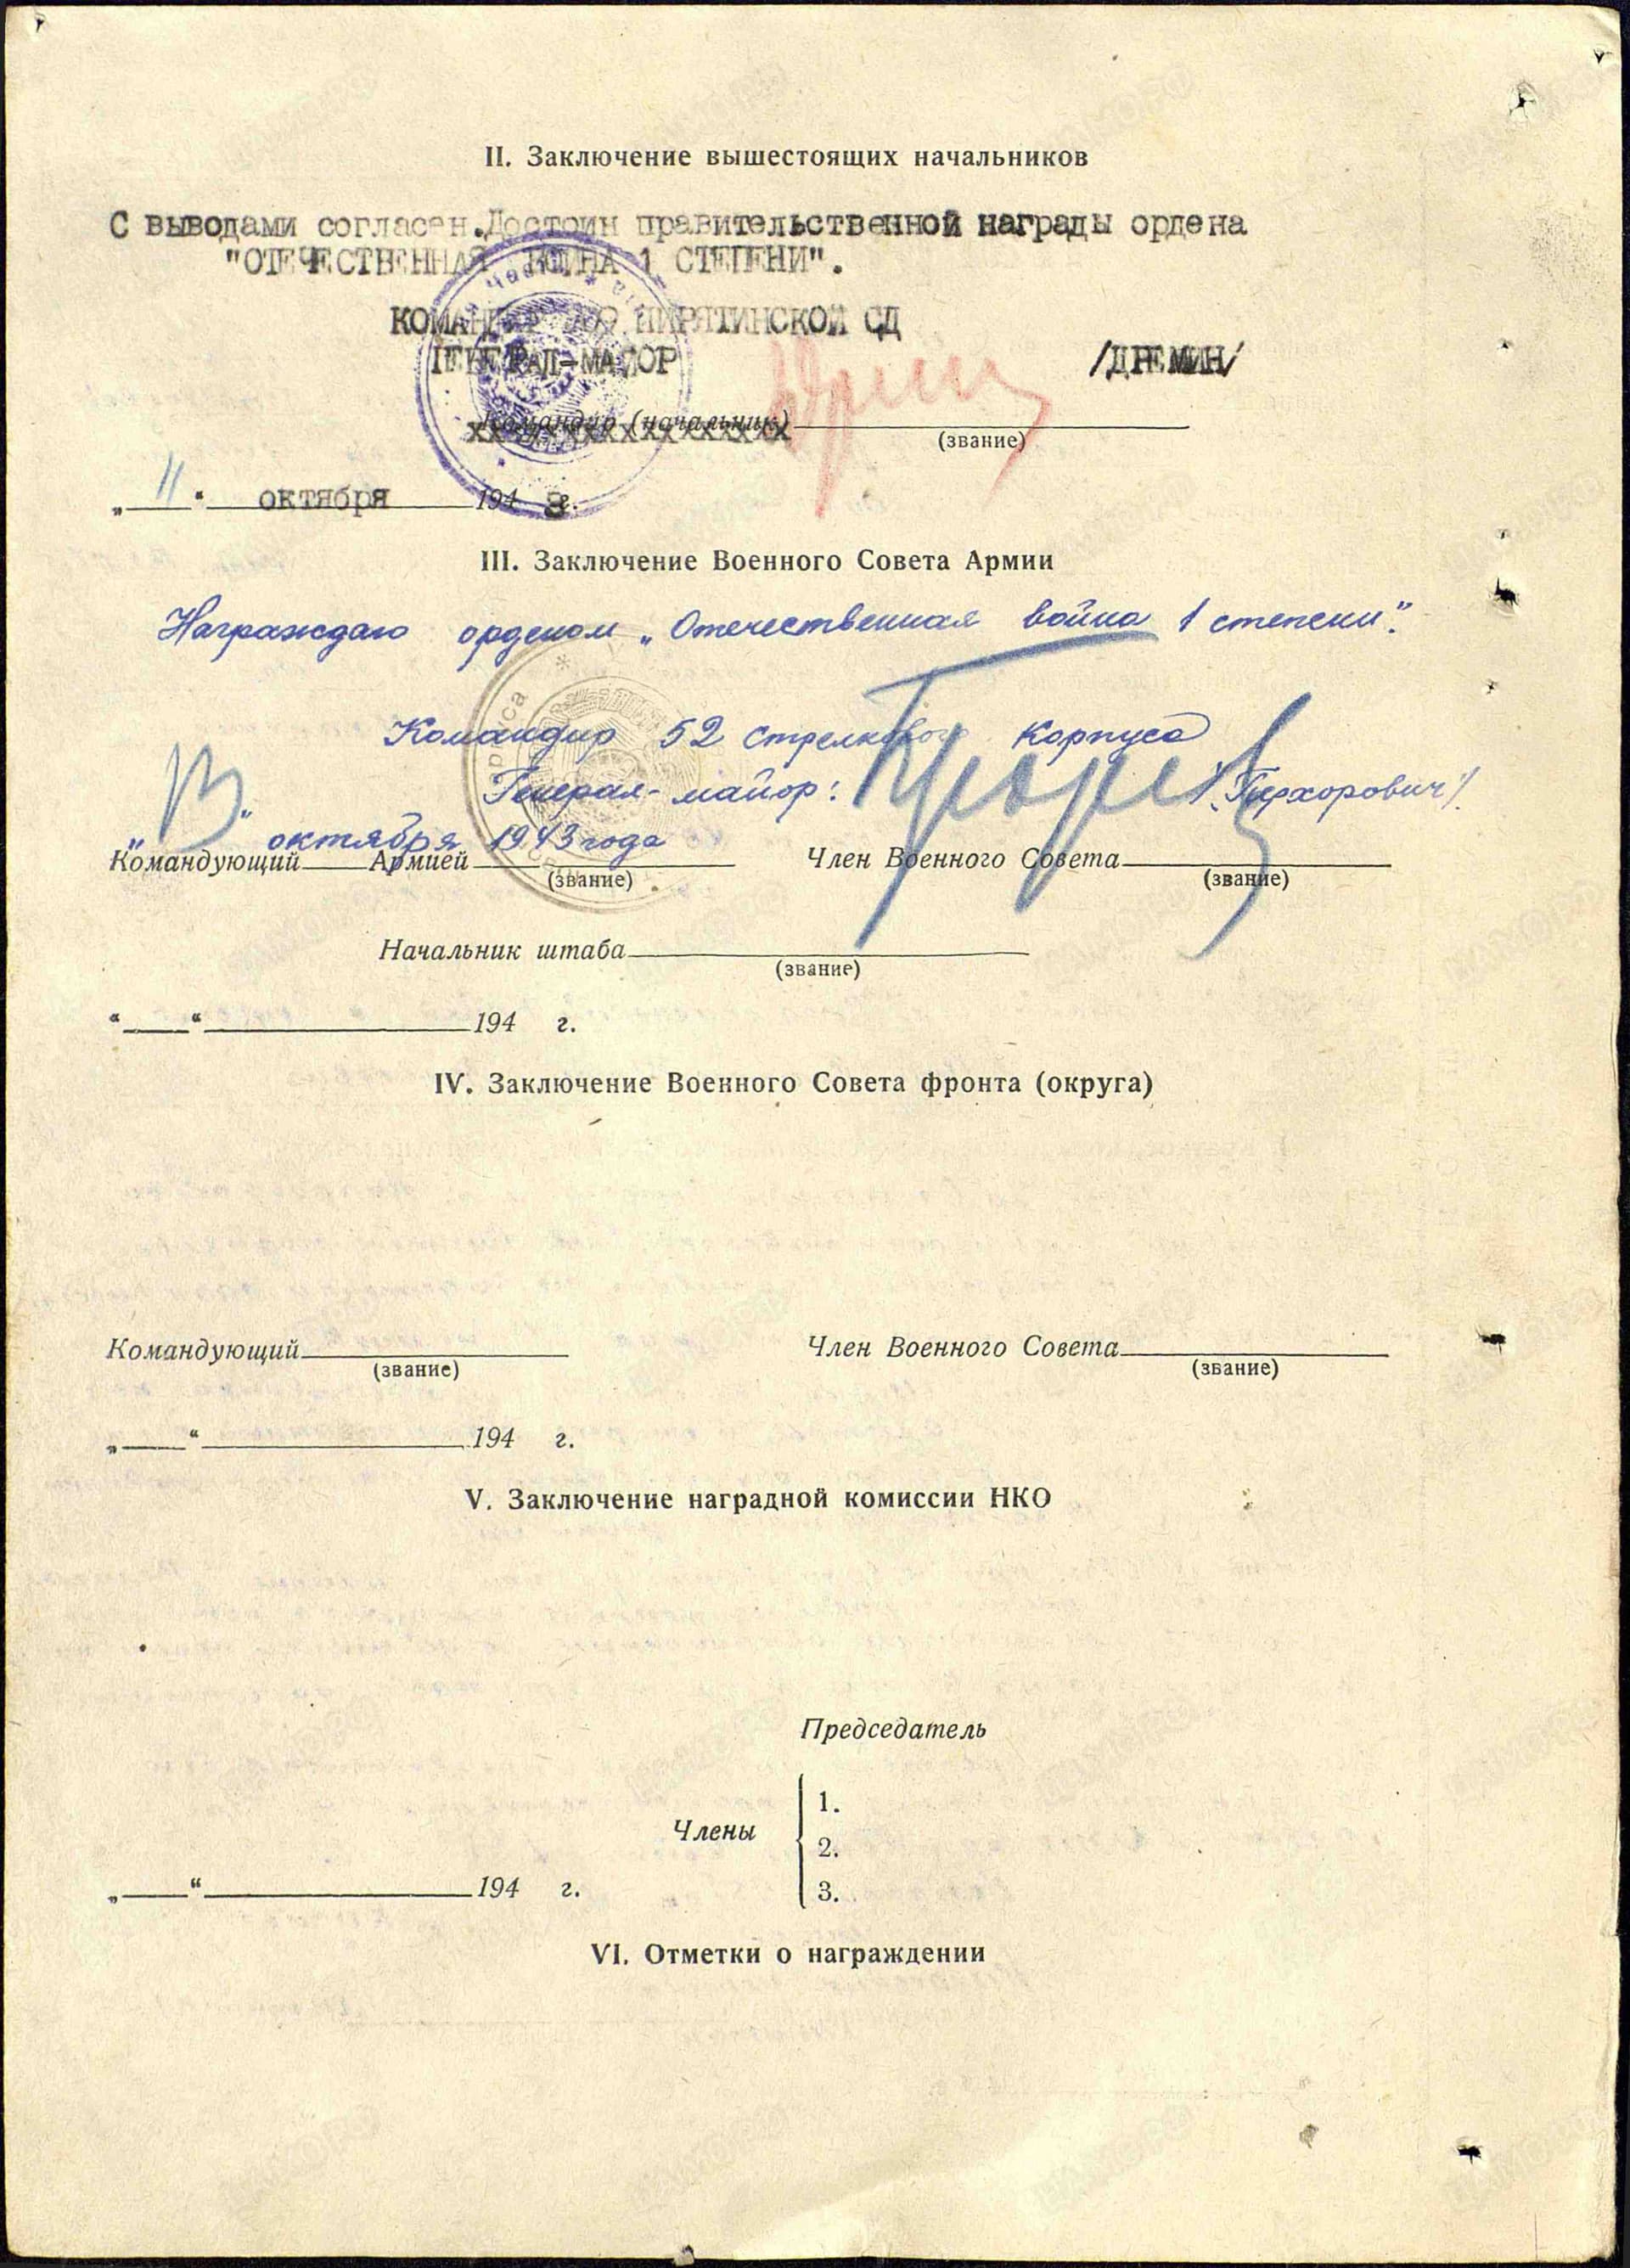 II. Заключение вышестоящих начальников
С выводами согласен.Достоин правительственной награды ордена
"ОТЕЧЕСТВЕННАЯ ВОЙНА 1 СТЕПЕНИ".
КОМАНДИР ПИРЯТИНСКОЙ СД
ГЕНЕРАЛ-МАЙОР
Командир (начальник)
(звание)
„11“ октября 194 г.
III. Заключение Военного Совета Армии
Награждаю орденом „Отечественная война 1 степени".
Командир 52 стрелкового корпуса
Генерал-майор: /Терхорович/
„13" октября 1943 года
Командующий Армией Член Военного Совета
(звание) (звание)
Начальник штаба
(звание)
“ “ 194 г.
IV. Заключение Военного Совета фронта (округа)
Командующий Член Военного Совета
(звание) (звание)
„ “ 194 г.
V. Заключение наградной комиссии НКО
Председатель
1.
Члены 2.
3.
„ “ 194 г.
VI. Отметки о награждении